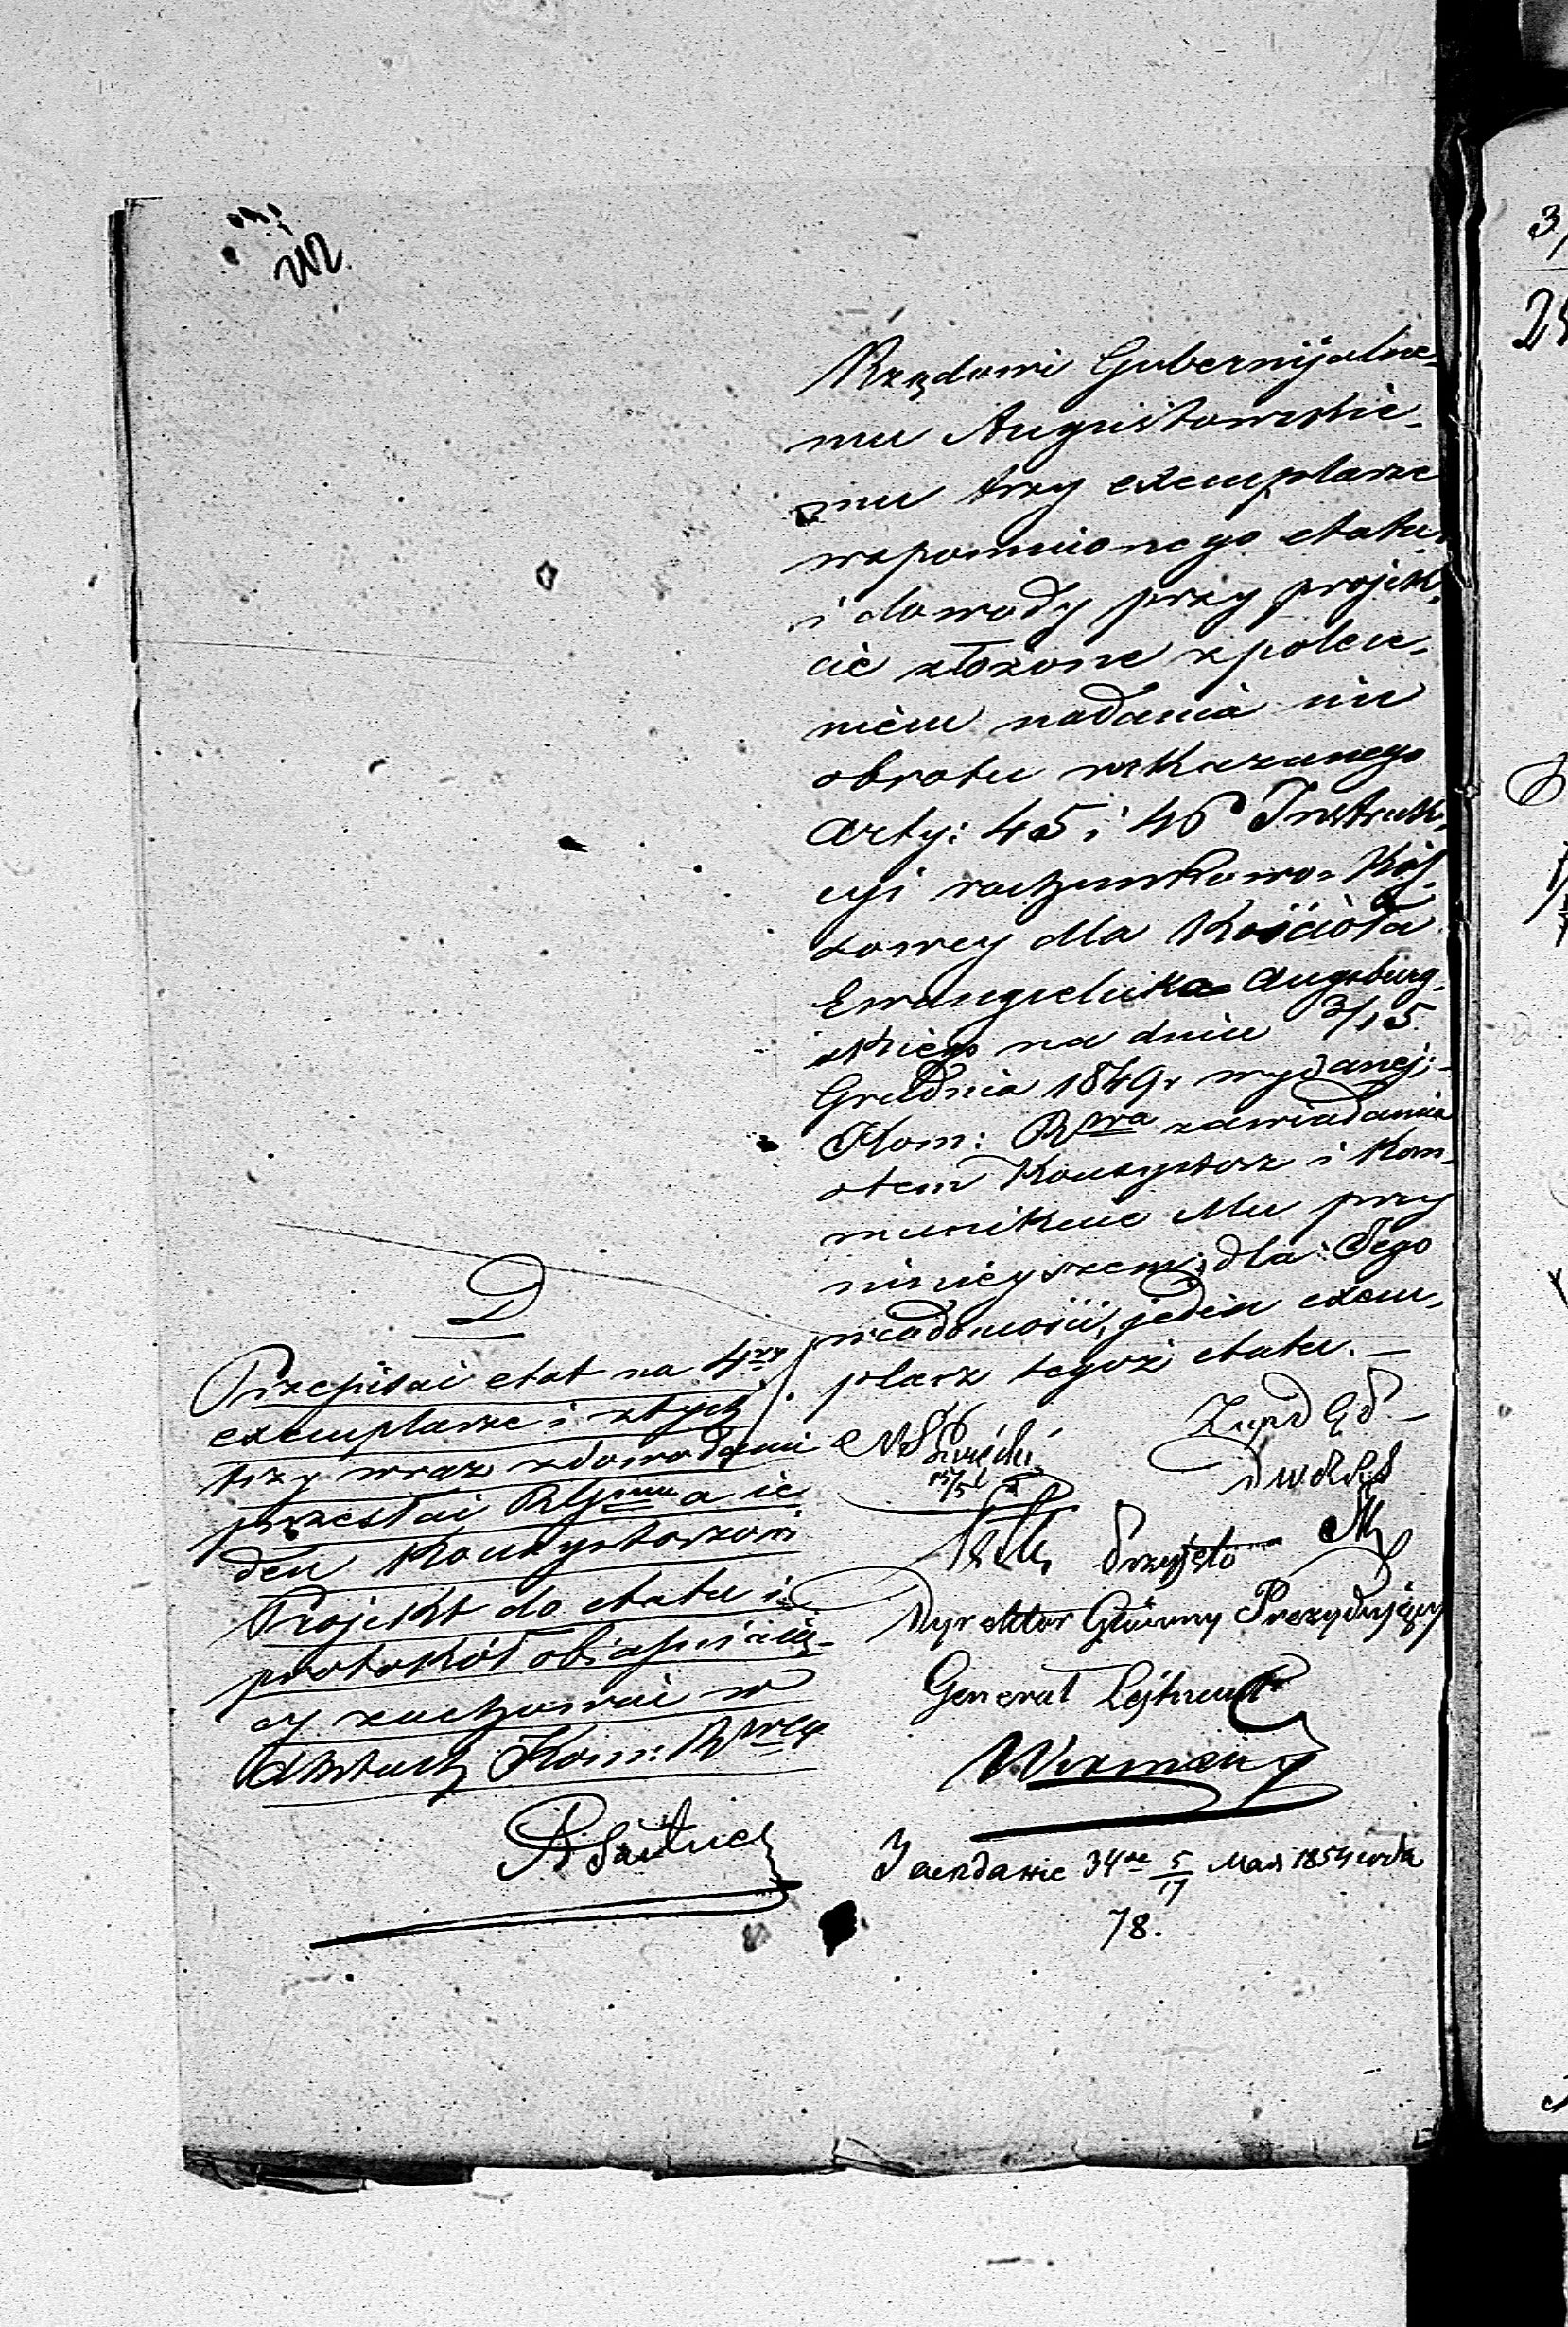 212
Rządowi Gubernijalne-
mu Augustowskie-
mu trzy exemplarze
wspomnionego etatu
i dowody przy projek-
cie złożone z polece-
niem nadania im
obrotu wskazanego
Arty: 45 i 46 Instruk-
cyi rachunkowo-Kas-
sowey dla Kościoła
Ewangielicko Augsburg-
skiego na dniu 3/15
Grudnia 1849r wydanej.-
Kom: Rwa zawiadamia
otem Konsystorz i kom-
munikuie Mu przy
ninieyszem, dla Jego
wiadomości, jeden exem-
plarz tegoż etatu. —
Przyjęto
Dyrektor Główny Prezydujący
Generał Lejtnant
Wikiński
Заседание 34ое 5/17 Мая 1854 года
78.
D
Przepisać etat na 4ry
exemplarze i z tych
trzy wraz z dowodami
przesłać RGmu a ie
den Konsystorzowi
Projekt do etatu i
protokół obiaśniaią-
cy zachować w
aktach Kom: Rwey